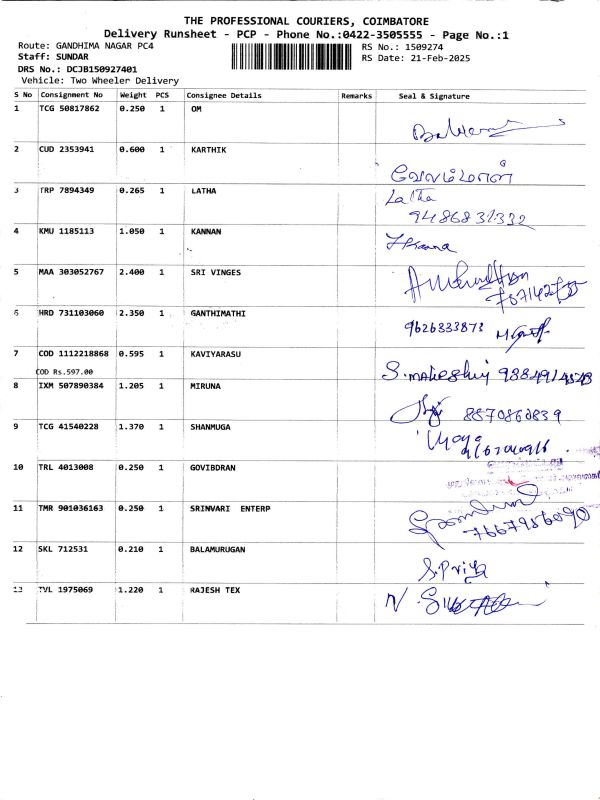 THE PROFESSIONAL COURIERS, COIMBATORE
Delivery Runsheet - PCP - Phone No.:0422-3505555 - Page No.:1
Route: GANDHIMA NAGAR PC4 RS No.: 1509274
Staff: SUNDAR RS Date: 21-Feb-2025
DRS No.: DCJB150927401
Vehicle: Two Wheeler Delivery
S No Consignment No Weight PCS Consignee Details Remarks Seal & Signature
1 TCG 50817862 0.250 1 OM
2 CUD 2353941 0.600 1 KARTHIK
3 TRP 7894349 0.265 1 LATHA Latha
9486831332
4 KMU 1185113 1.050 1 KANNAN
5 MAA 303052767 2.400 1 SRI VINGES
6 HRD 731103060 2.350 1 GANTHIMATHI 9626333873
7 COD 1112218868 0.595 1 KAVIYARASU S.maheshwj
COD Rs.597.00
8 IXM 507890384 1.205 1 MIRUNA 8870860839
9 TCG 41540228 1.370 1 SHANMUGA
10 TRL 4013008 0.250 1 GOVIBDRAN
11 TMR 901036163 0.250 1 SRINVARI ENTERP
12 SKL 712531 0.210 1 BALAMURUGAN S.Priya
13 TVL 1975069 1.220 1 RAJESH TEX